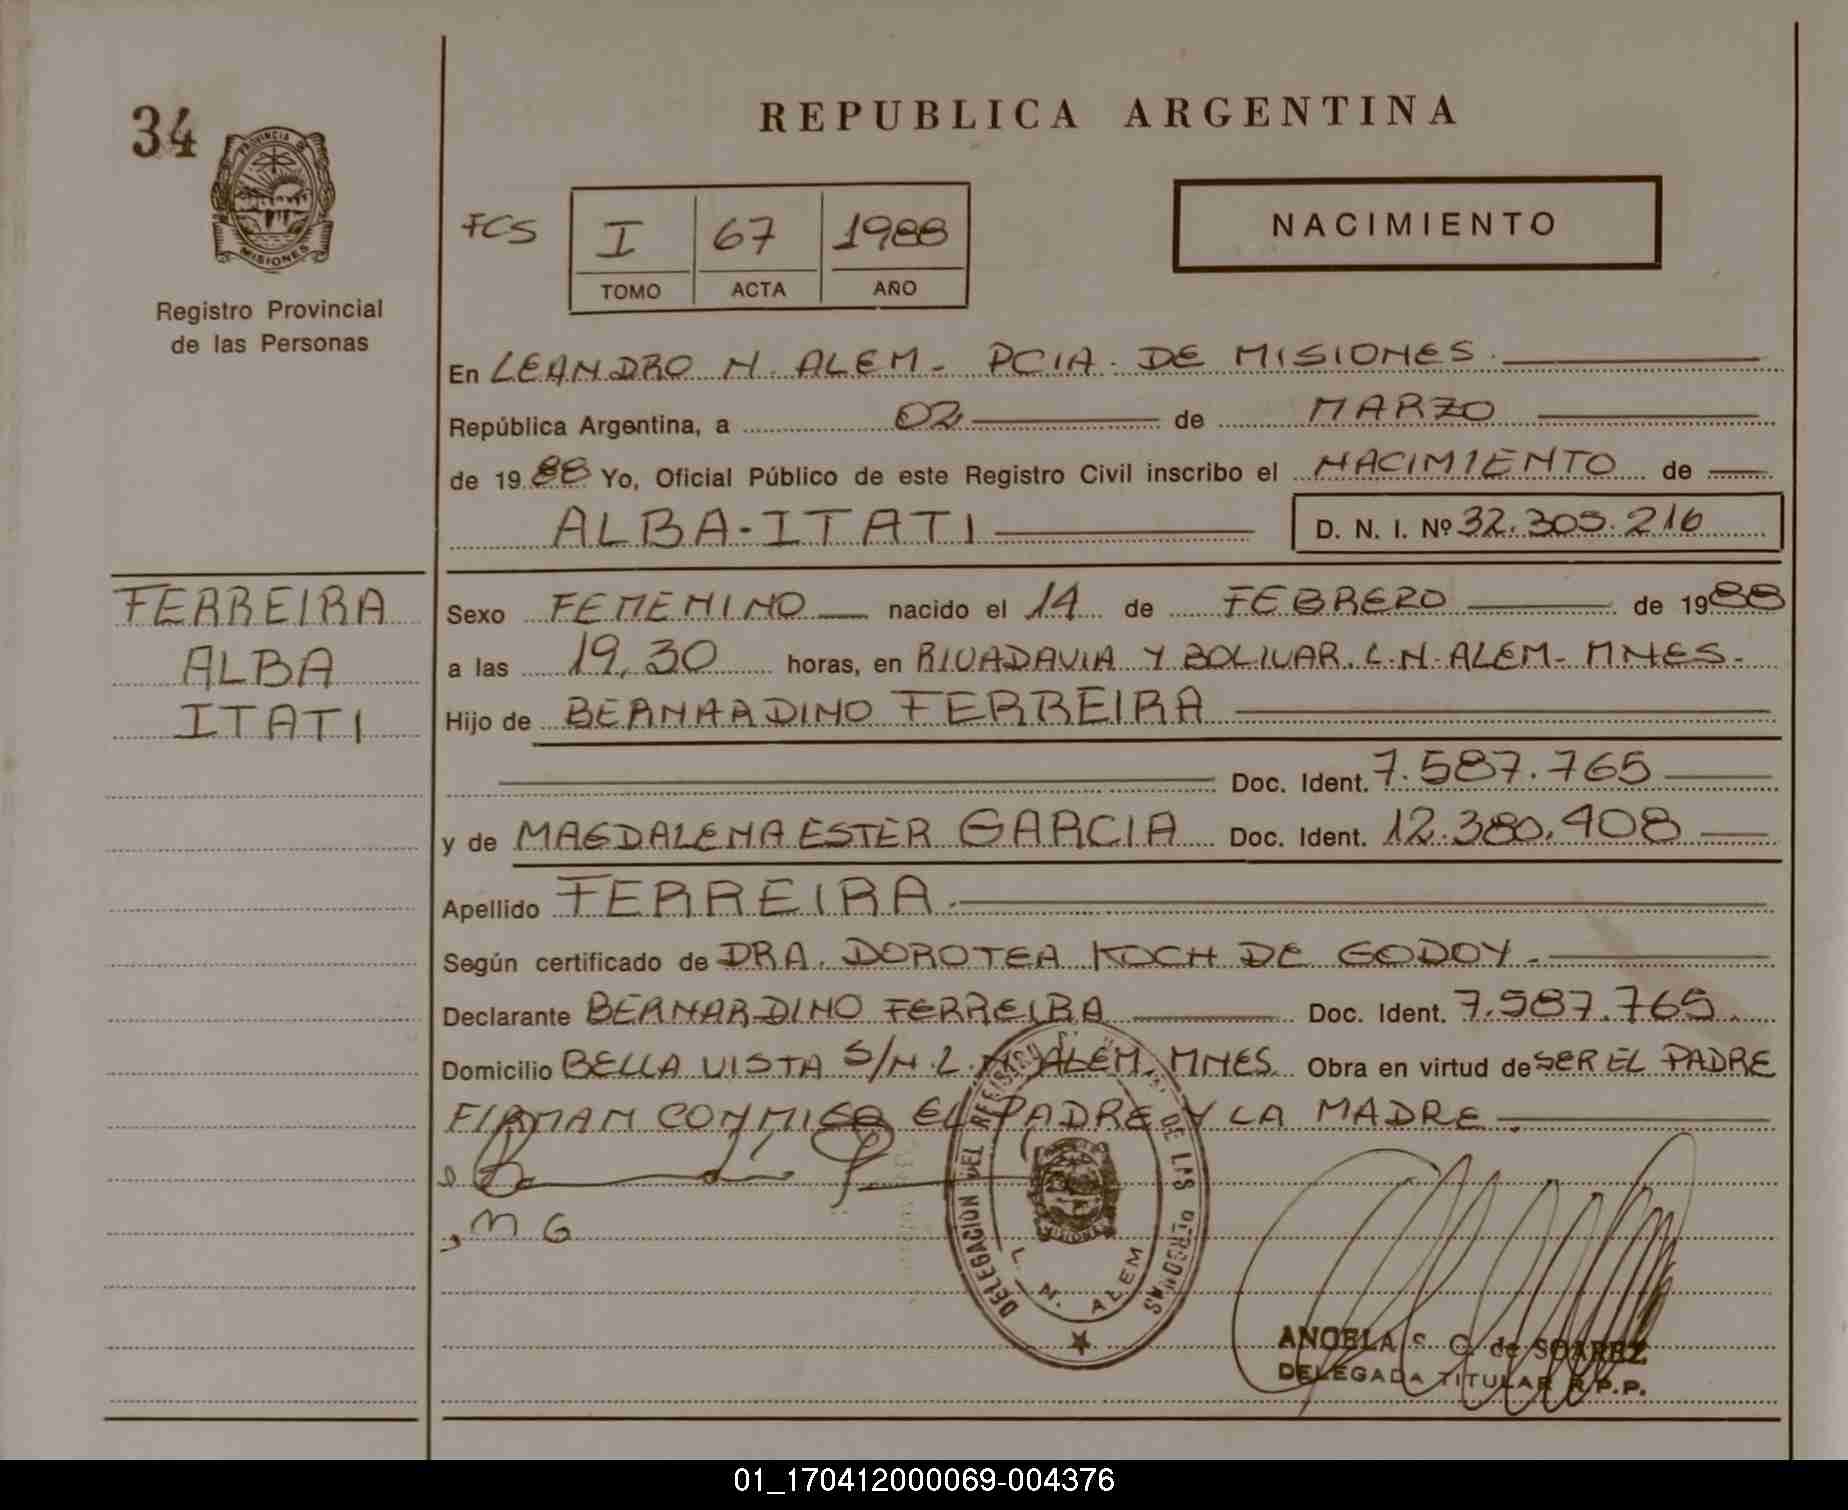 34
REPUBLICA ARGENTINA
PROVINCIA DE
MISIONES
Registro Provincial
de las Personas
FCS I 67 1988
TOMO ACTA AÑO
NACIMIENTO
En LEANDRO N. ALEM - PCIA. DE MISIONES.
República Argentina, a 02 de MARZO
de 1988 Yo, Oficial Público de este Registro Civil inscribo el NACIMIENTO de
ALBA-ITATI D. N. I. Nº 32.305.216
FERREIRA
ALBA
ITATI
Sexo FEMENINO nacido el 14 de FEBRERO de 1988
a las 19,30 horas, en RIVADAVIA Y BOLIVAR. L.N. ALEM- MNES-
Hijo de BERNARDINO FERREIRA
Doc. Ident. 7.587.765
y de MAGDALENA ESTER GARCIA Doc. Ident. 12.380.408
Apellido FERREIRA.
Según certificado de DRA. DOROTEA KOCH DE GODOY.
Declarante BERNARDINO FERREIRA Doc. Ident. 7.587.765
Domicilio BELLA VISTA S/N. L.N. ALEM. MNES. Obra en virtud de SER EL PADRE
FIRMAN CONMIGO EL PADRE Y LA MADRE.
M G
DELEGACION DEL REGISTRO DE LAS PERSONAS
MISIONES
L. N. ALEM
ANGELA S. G. de SOAREZ
DELEGADA TITULAR R.P.P.
01_170412000069-004376